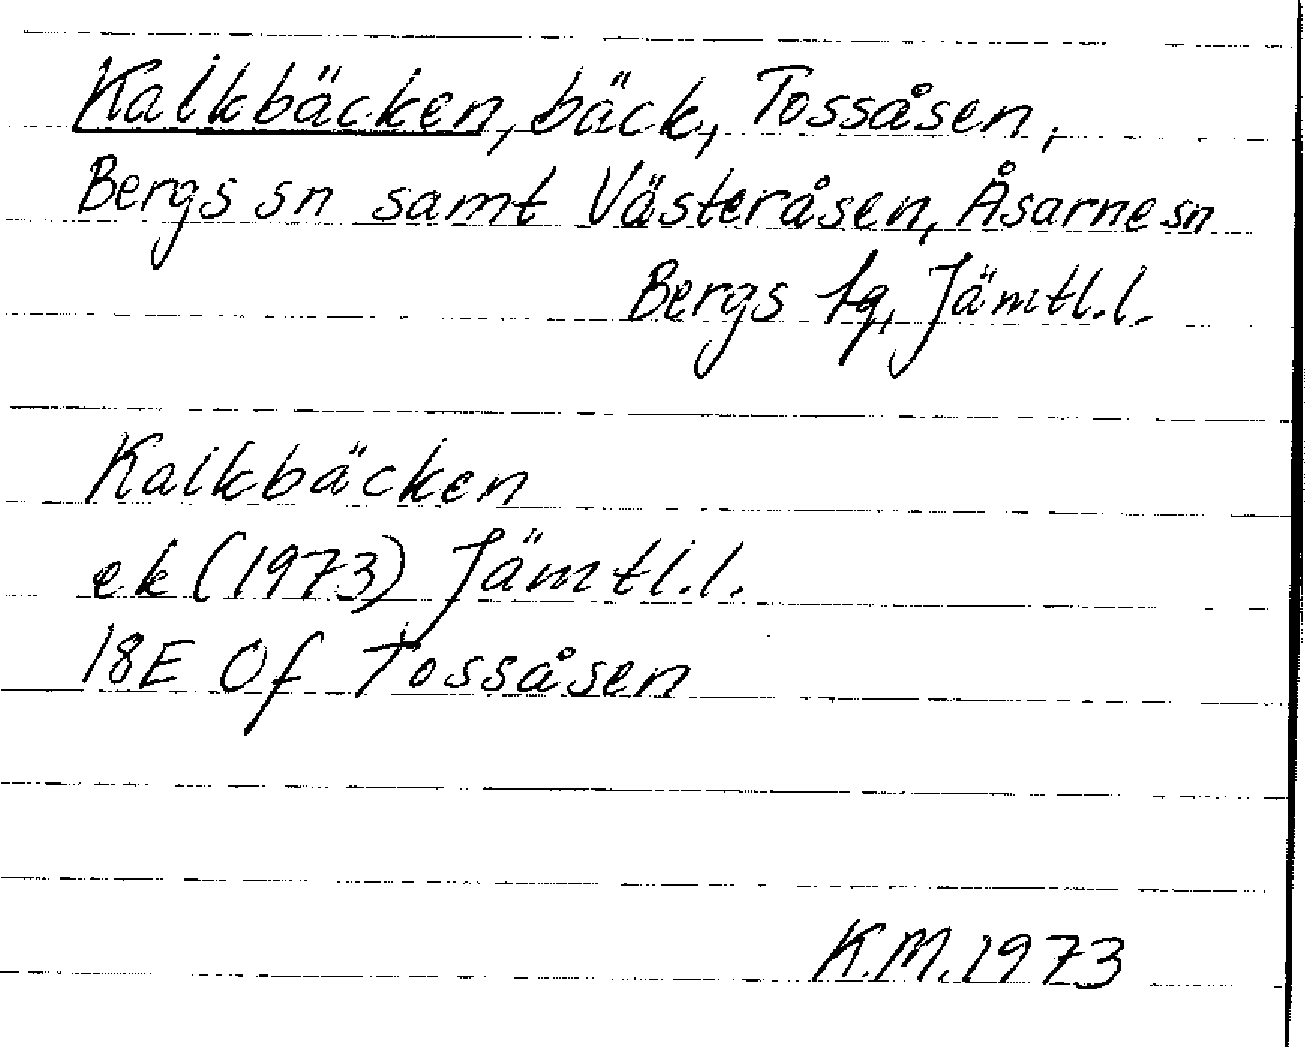 Kalkbäcken, bäck, Tossåsen,
Bergs sn samt Västeråsen, Åsarne sn
Bergs tg, Jämtl.l.
Kalkbäcken
ek (1973) Jämtl.l.
18E 0f Tossåsen
K.M. 1973